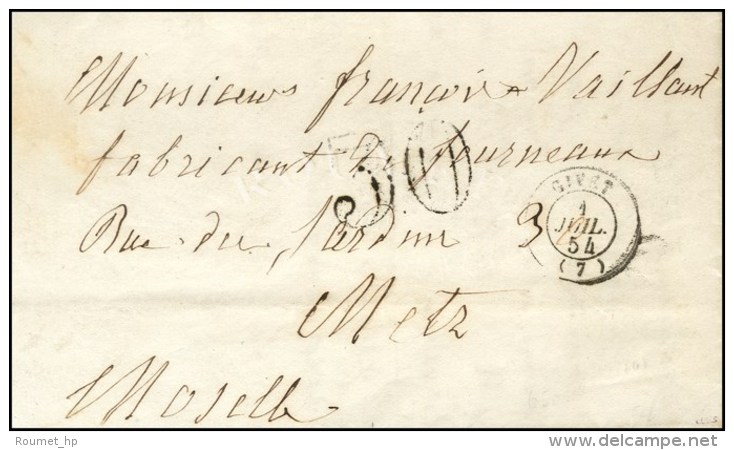 Monsieur françois Vaillant
fabricant de fourneaux
30
Rue du Jardin 3
GIVET
1
JUIL.
54
(7)
Metz
Moselle
Roumet_hp
delcampe.net